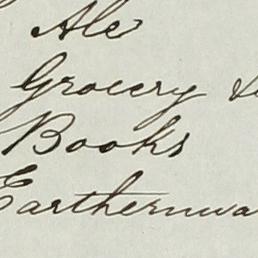 Ale
Grocery
Books
Earthernwa